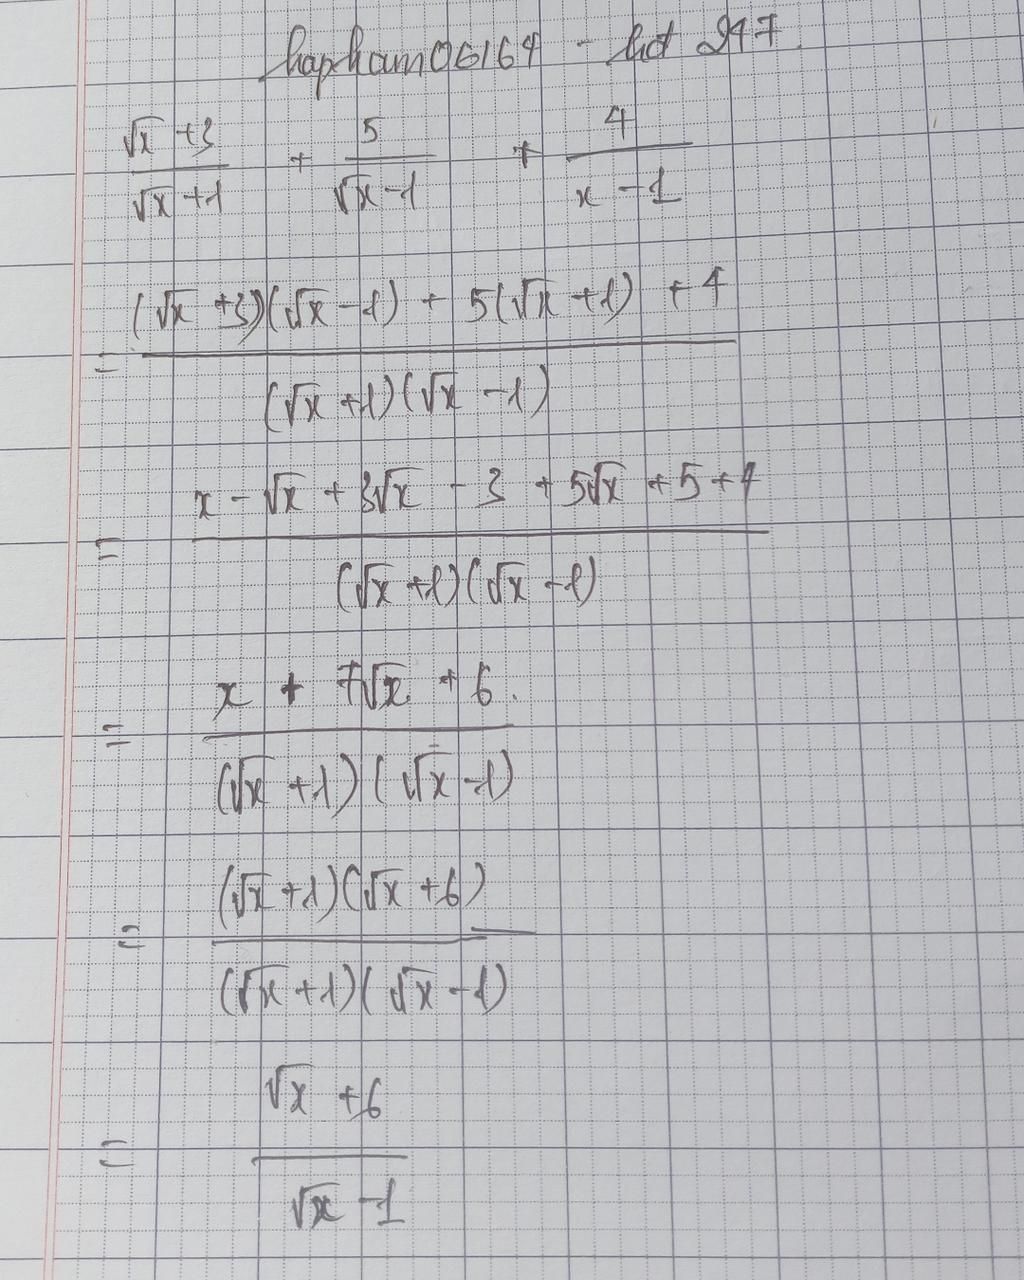 hapham06164 - hd 247
(√x +3)/(√x +1) + 5/(√x -1) + 4/(x -1)
= ((√x +3)(√x -1) + 5(√x +1) +4)/((√x +1)(√x -1))
= (x - √x + 3√x - 3 + 5√x +5 +4)/((√x +1)(√x -1))
= (x + 7√x + 6.)/((√x +1)(√x -1))
= ((√x +1)(√x +6))/((√x +1)(√x -1))
= (√x +6)/(√x -1)